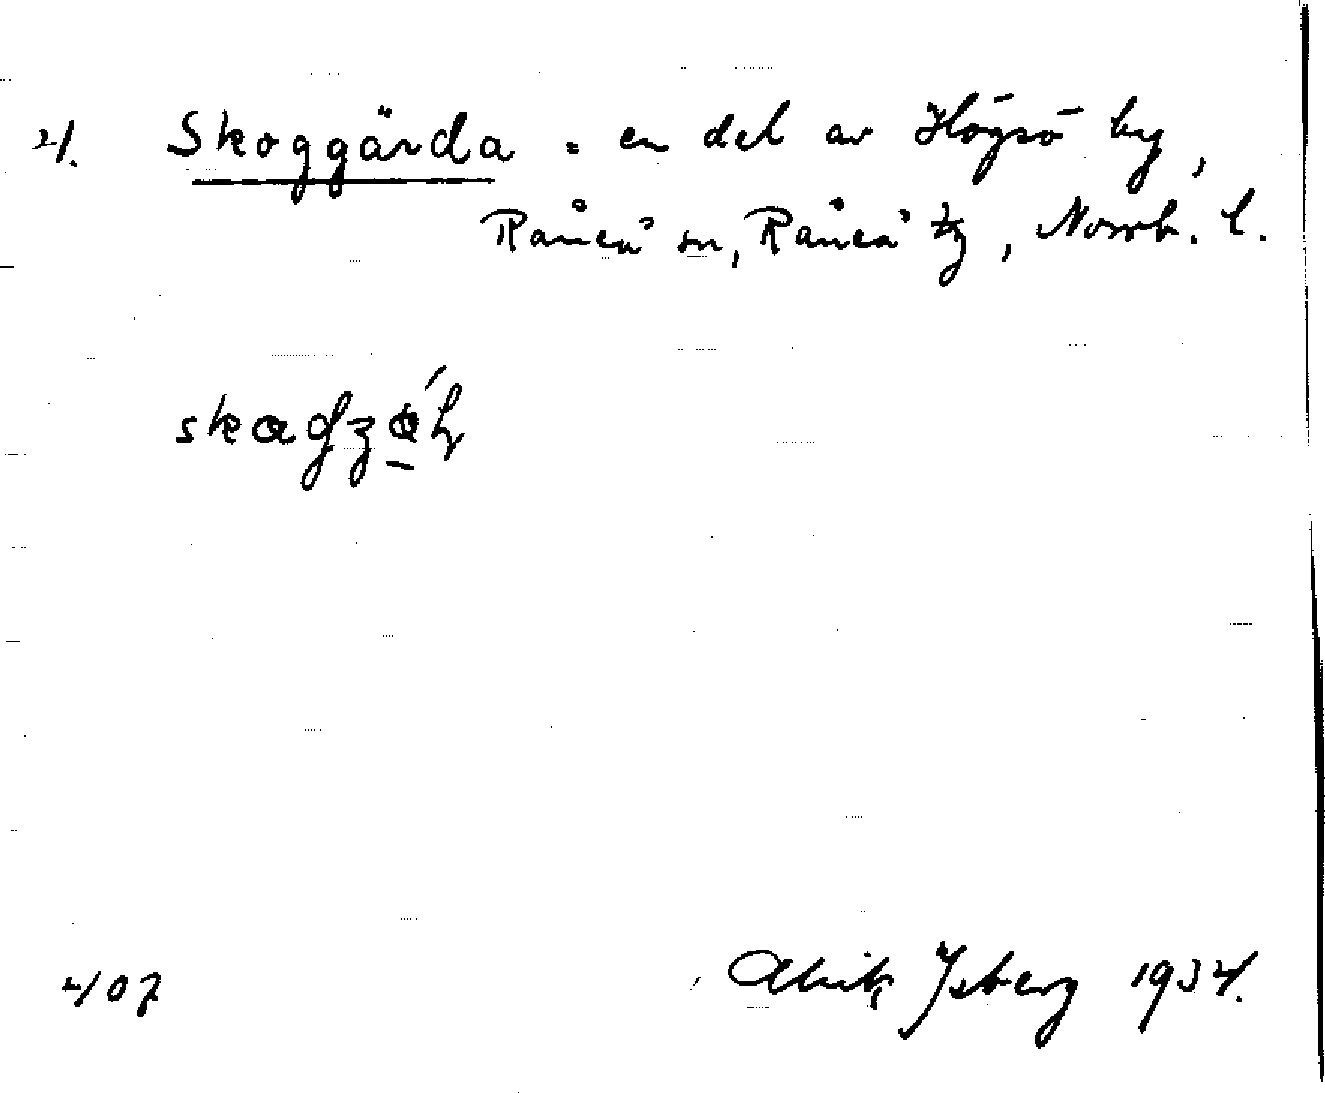 4. Skoggärda = en del av Högsö by,
Råneå sn, Råneå tg, Norrb. l.
407
Alrik Ysberg 1934.